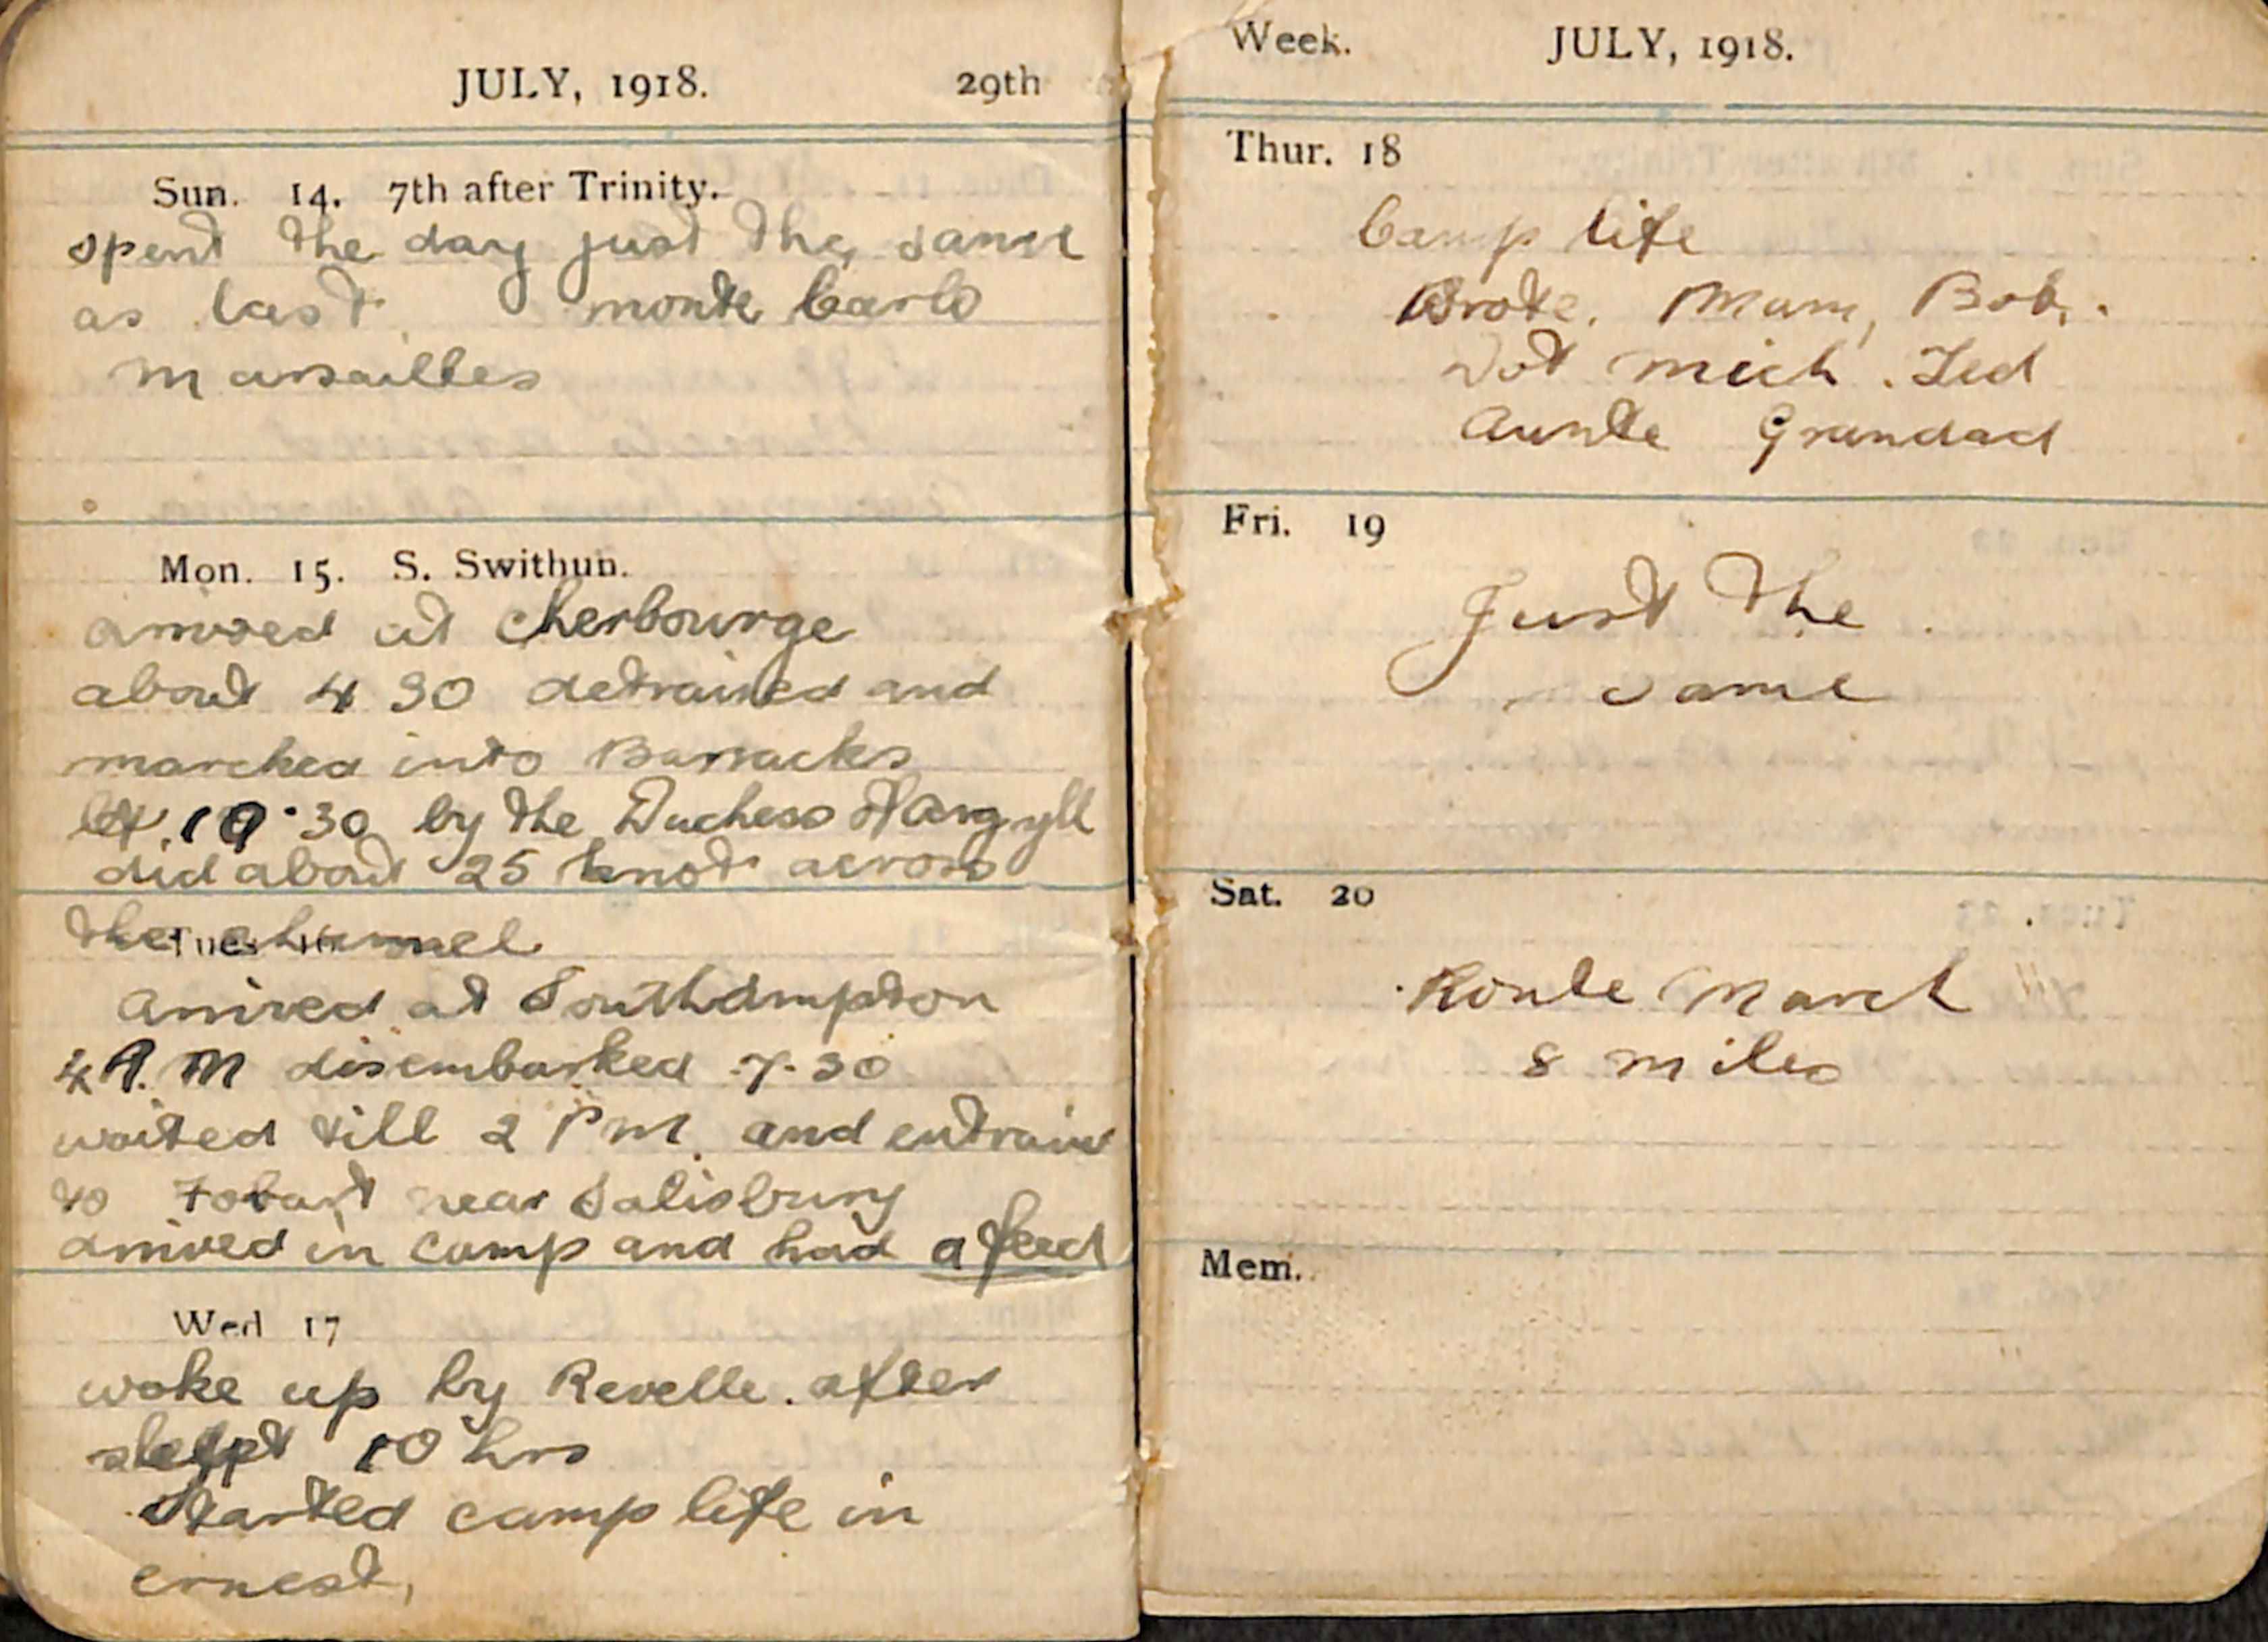 JULY, 1918. 29th
Sun. 14. 7th after Trinity.
spent the day just the same
as last monte Carlo
Marsailles
Mon. 15. S. Swithun.
arrived at Cherbourge
about 4 30 detrained and
marched into Barracks
left 10.30 by the Duchess of Argyll
did about 25 knots across
Tues 16
the channel
Arrived at Southampton
4 A.M disembarked 7.30
waited till 2 PM. and entrain
to Fobant near Salisbury
arrived in camp and had a feed
Wed 17
woke up by Revelle. after
slept 10 hrs
Started camp life in
ernest,
Week. JULY, 1918.
Thur. 18
Camp life
Wrote. Mam, Bob,.
Dot Mich. Ted
Aunte Grandad
Fri. 19
Just the
same
Sat. 20
Route March
8 miles
Mem.